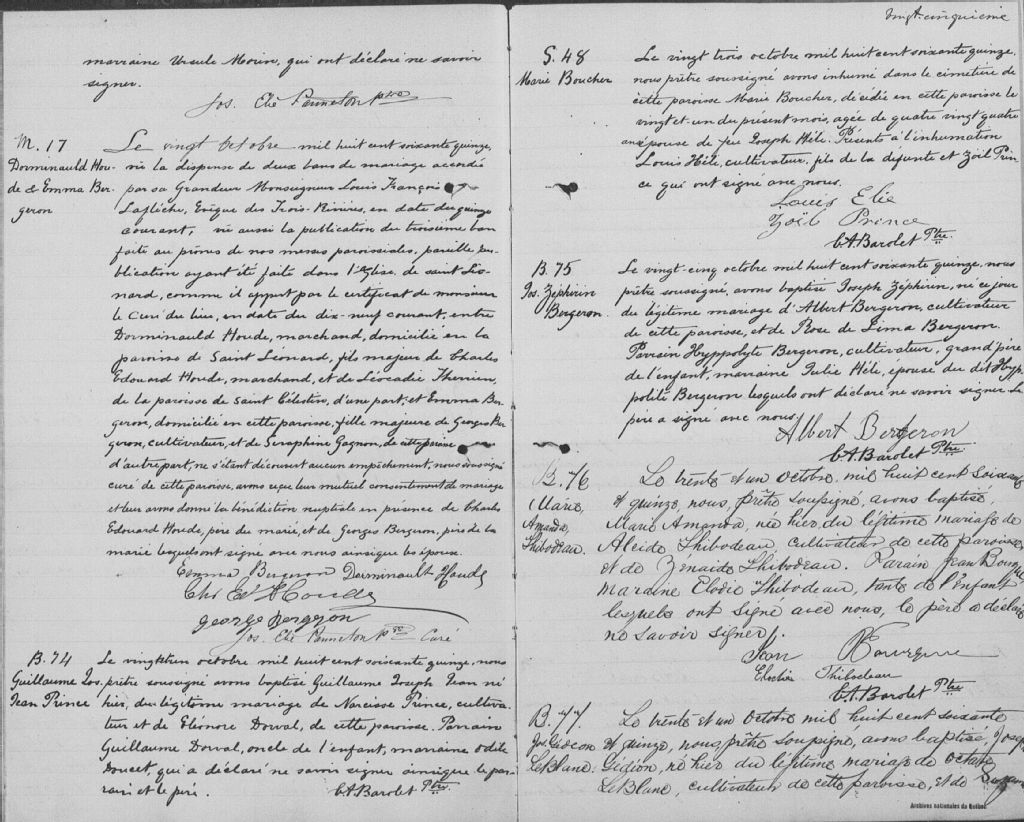 marraine Ursule Morin, qui ont déclaré ne savoir
signer.
Jos. Elie Panneton ptre
M. 17
Dorminauld Hou-
de & Emma Ber-
geron
Le vingt Octobre mil huit cent soixante quinze,
vu la dispense de deux bans de mariage accordé
par sa Grandeur Monseigneur Louis François
Laflèche, Evêque des Trois-Rivières, en date du quinze
courant, vu aussi la publication du troisième ban
faite au prône de nos messes paroissiales, pareille pu-
blication ayant été faite dans l'Eglise de saint Léo-
nard, comme il appert par le certificat de monsieur
le Curé du lieu, en date du dix-neuf courant, entre
Dorminauld Houde, marchand, domicilié en la
paroisse de Saint Léonard, fils majeur de Charles
Edouard Houde, marchand, et de Léocadie Therrien,
de la paroisse de Saint Célestin, d'une part; et Emma Ber-
geron, domiciliée en cette paroisse, fille majeure de Georges Ber-
geron, cultivateur, et de Séraphine Gagnon, de cette paroisse
d'autre part, ne s'étant découvert aucun empêchement, nous soussigné
curé de cette paroisse, avons reçu leur mutuel consentement de mariage
et leur avons donné la bénédiction nuptiale en présence de Charles
Edouard Houde, père du marié et de Georges Bergeron, père de la
mariée lesquels ont signé avec nous ainsi que les époux.
Emma Bergeron Dorminault Houde
Chs Ed Houde
george bergeron
Jos. Elie Panneton ptre Curé
B. 74
Guillaume Jos.
Jean Prince
Le vingt et un octobre mil huit cent soixante quinze, nous
prêtre soussigné avons baptisé Guillaume Joseph Jean né
hier, du légitime mariage de Narcisse Prince, cultiva-
teur et de Eléonore Dorval, de cette paroisse. Parrain
Guillaume Dorval, oncle de l'enfant, marraine Odile
Doucet, qui a déclaré ne savoir signer ainsi que le par-
rain et le père.
C.A. Barolet Ptre
vingt-cinquième
S. 48
Marie Boucher
Le vingt trois octobre mil huit cent soixante quinze,
nous prêtre soussigné avons inhumé dans le cimetière de
cette paroisse Marie Boucher, décédée en cette paroisse le
vingt-et-un du présent mois, agée de quatre vingt quatre
ans, épouse de feu Joseph Héli. Présents à l'inhumation
Louis Héli, cultivateur, fils de la défunte et Zoël Prin-
ce qui ont signé avec nous.
Louis Elie
Zoël Prince
C.A. Barolet Ptre.
B. 75
Jos. Zéphirin
Bergeron.
Le vingt-cinq octobre mil huit cent soixante quinze, nous
prêtre soussigné, avons baptisé Joseph Zéphirin, né ce jour
du légitime mariage d'Albert Bergeron, cultivateur
de cette paroisse, et de Rose de Lima Bergeron.
Parrain Hyppolyte Bergeron, cultivateur, grand'père
de l'enfant, marraine Julie Héli, épouse du dit Hyp-
polite Bergeron lesquels ont déclaré ne savoir signer. Le
père a signé avec nous.
Albert Bergeron
C.A. Barolet Ptre.
B. 76
Marie
Amanda
Thibodeau.
Le trente et un Octobre mil huit cent soixante
et quinze, nous, prêtre soussigné, avons baptisé,
Marie Amanda, née hier du légitime mariage de
Aleide Thibodeau, cultivateur de cette paroisse
et de Zenaide Thibodeau. Parain Jean Bourque
maraine Elodie Thibodeau, tante de l'enfant
lesquels ont signé avec nous, le père a déclaré
ne savoir signer.
Jean Bourque
Elodie Thibodeau
C.A. Barolet Ptre
B. 77.
Jos. Gédéon
LeBlanc
Le trente et un Octobre mil huit cent soixante
et quinze, nous, prêtre soussigné, avons baptisé, Joseph
Gédéon, né hier du légitime mariage de Octave
LeBlanc, cultivateur de cette paroisse, et de
Archives nationales du Québec